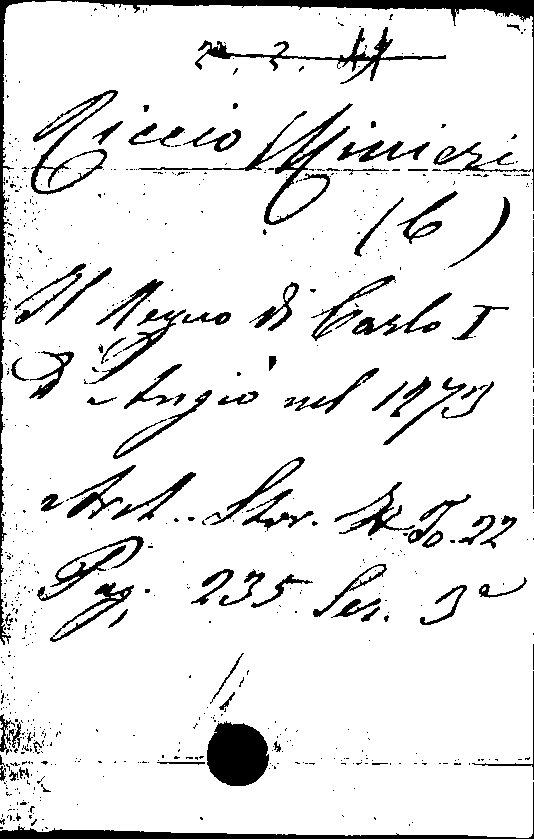 2. 2.
Riccio Minieri
(C)
Il Regno di Carlo I
D'Angiò nel 1273
Arch. Stor. It To. 22
Pag. 235 Ser. 3ª